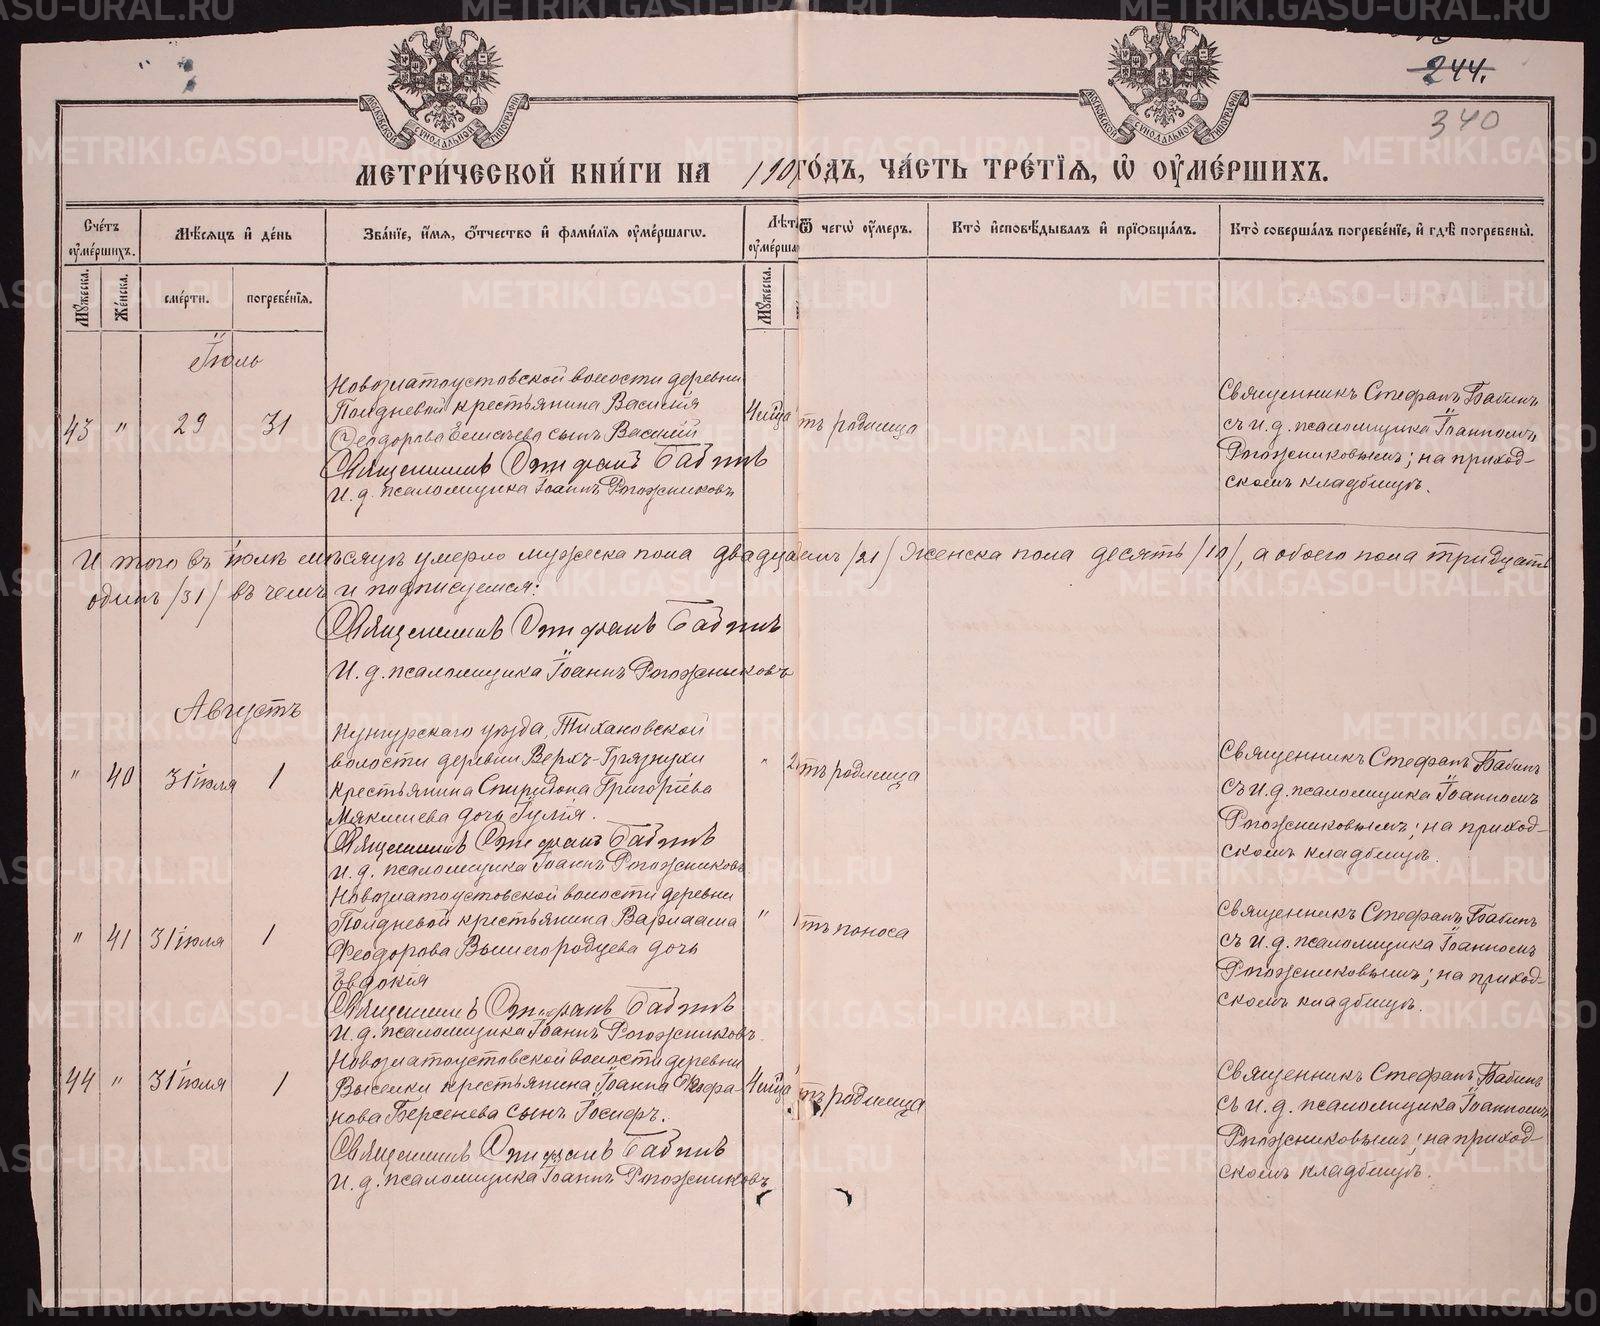 244.
340
МОСКОВСКОЙ СѴНОДАЛЬНОЙ ТИПОГРАФІИ
МОСКОВСКОЙ СѴНОДАЛЬНОЙ ТИПОГРАФІИ
МЕТРИ́ЧЕСКОЙ КНИ́ГИ НА 190 ГО́ДЪ, ЧА́СТЬ ТРЕ́ТІЯ, Ѡ҆ ОУ҆МЕ́РШИХЪ.
Сче́тъ оу҆ме́ршихъ.
Мꙋ́жеска.
Же́нска.
Мѣ́сяцъ и҆ де́нь
сме́рти.
погребе́нїя.
Зва́нїе, и҆́мя, ѻ҆́тчество и҆ фамі́лїя оу҆ме́ршагѡ.
Лѣт
оу҆ме́рша
Мꙋ́жеска.
Ѿ чегѡ̀ оу҆́меръ.
Кто̀ и҆сповѣ́дывалъ и҆ прїѻбща́лъ.
Кто̀ соверша́лъ погребе́нїе, и҆ гдѣ̀ погребены̀.
Іюль
43 " 29 31
Новозлатоустовской волости деревни
Полдневой крестьянина Василія
Ѳеодорова Елисѣева сынъ Василій
Священникъ Стефанъ Бабинъ
И. д. псаломщика Іоаннъ Рогожниковъ
4 мѣц
тъ родимца
Священникъ Стефанъ Бабинъ
съ и. д. псаломщика Іоанномъ
Рогожниковымъ; на приход-
скомъ кладбищѣ.
И того въ Іюлѣ мѣсяцѣ умерло мужеска пола двадца емъ /21/ женска пола десять /10/, а обоего пола тридцать
одинъ /31/ въ чемъ и подписуемся:
Священникъ Стефанъ Бабинъ
И. д. псаломщика Іоаннъ Рогожниковъ
Августъ
" 40 31 іюля 1
Кунгурскаго уѣзда, Тихановской
волости деревни Верхъ-Грязнухи
крестьянина Спиридона Григоріева
Мякишева дочь Іулія.
Священникъ Стефанъ Бабинъ
И. д. псаломщика Іоаннъ Рогожниковъ
" 2
тъ родимца
Священникъ Стефанъ Бабинъ
съ и. д. псаломщика Іоанномъ
Рогожниковымъ; на приход-
скомъ кладбищѣ.
" 41 31 іюля 1
Новозлатоустовской волости деревни
Полдневой крестьянина Варлаама
Ѳеодорова Вышегородцева дочь
Евдокія
Священникъ Стефанъ Бабинъ
И. д. псаломщика Іоаннъ Рогожниковъ.
" 1
тъ поноса
Священникъ Стефанъ Бабинъ
съ и. д. псаломщика Іоанномъ
Рогожниковымъ; на приход-
скомъ кладбищѣ.
44 " 31 іюля 1
Новозлатоустовской волости деревни
Выселки крестьянина Іоанна Ѳеофа-
нова Берсенева сынъ Іосифъ.
Священникъ Стефанъ Бабинъ
И. д. псаломщика Іоаннъ Рогожниковъ
4 мѣц
тъ родимца
Священникъ Стефанъ Бабинъ
съ и. д. псаломщика Іоанномъ
Рогожниковымъ; на приход-
скомъ кладбищѣ.
METRIKI.GASO-URAL.RU